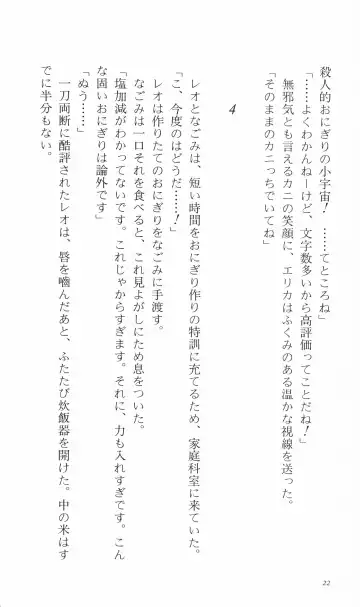 殺人的おにぎりの小宇宙！　……てところね」
「……よくわかんねーけど、文字数多いから高評価ってことだね！」
　無邪気とも言えるカニの笑顔に、エリカはふくみのある温かな視線を送った。
「そのままのカニっちでいてね」
4
　レオとなごみは、短い時間をおにぎり作りの特訓に充てるため、家庭科室に来ていた。
「こ、今度のはどうだ……！」
　レオは作りたてのおにぎりをなごみに手渡す。
　なごみは一口それを食べると、これ見よがしにため息をついた。
「塩加減がわかってないです。これじゃからすぎます。それに、力も入れすぎです。こん
な固いおにぎりは論外です」
「ぬう……」
　一刀両断に酷評されたレオは、唇を噛んだあと、ふたたび炊飯器を開けた。中の米はす
でに半分もない。
22